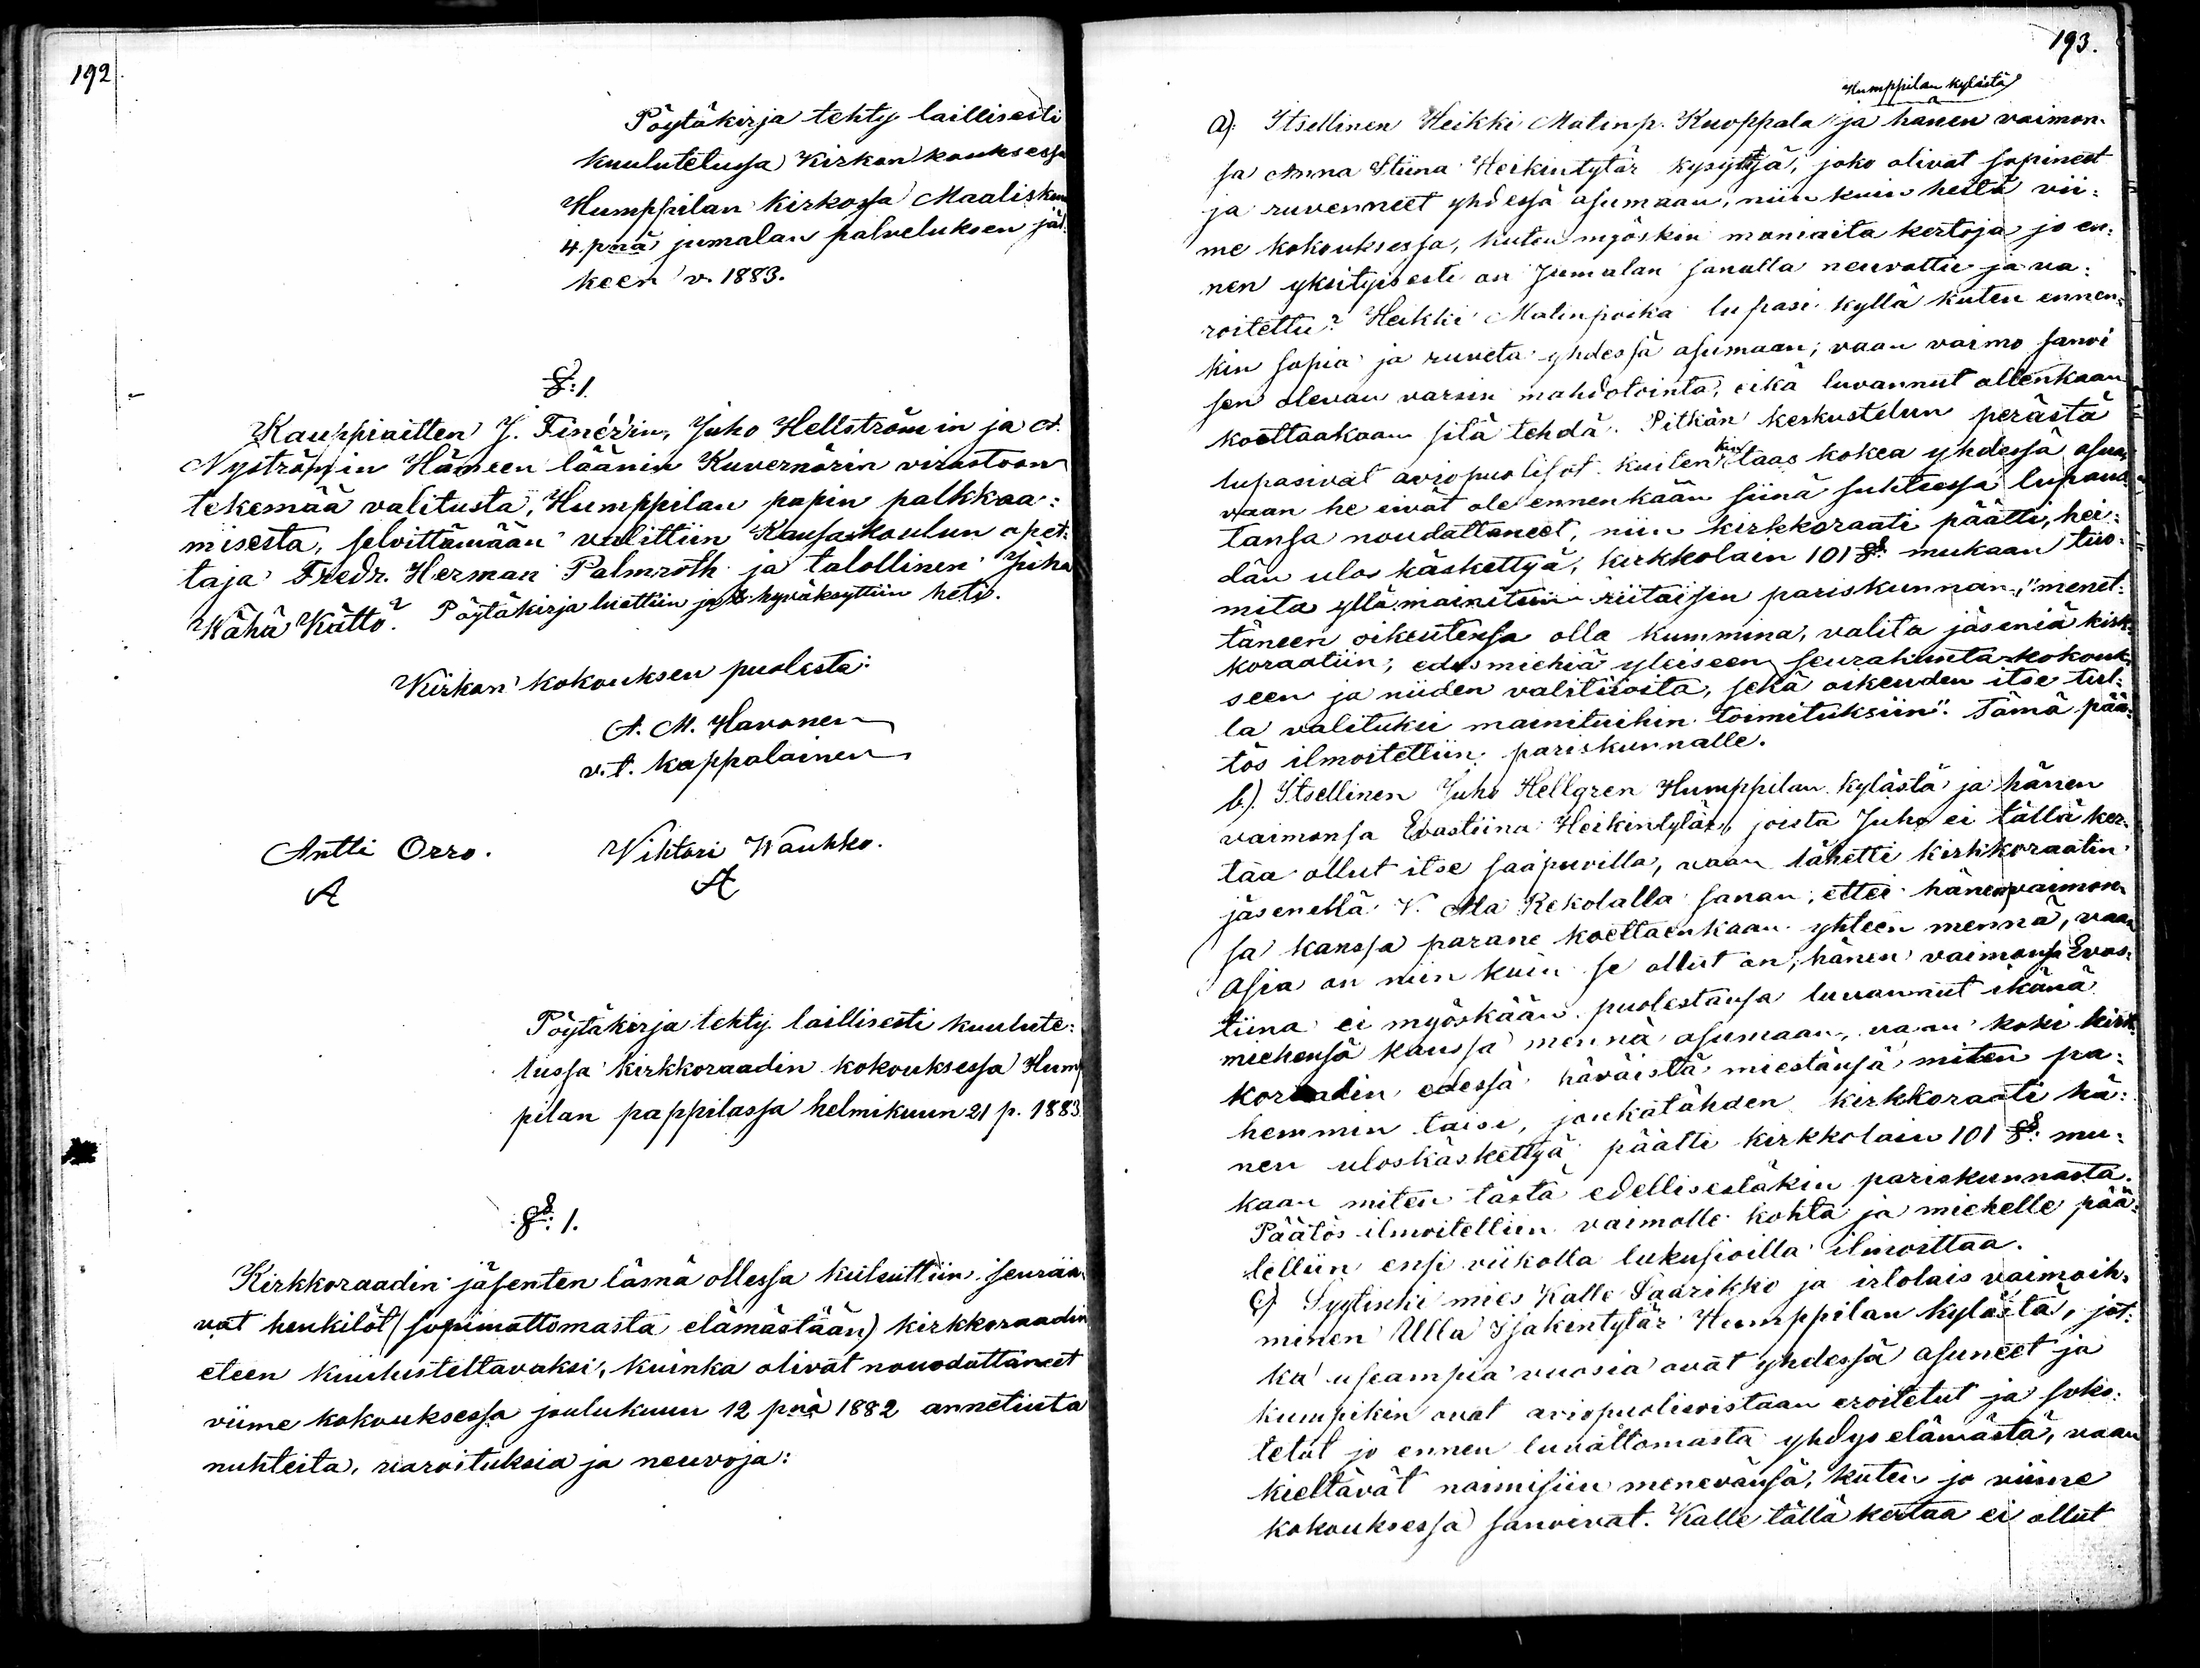 192
Pöytäkirja tehty laillisesti
kuulutetussa Kirkon kouksessa
Humppilan kirkossa Maaliskuu
4. pnä jumalan palveluksen jäl-
keen v. 1883.
§: 1.
Kauppiaitten J. Finér'in, Juho Hellströmin ja A.
Nyströmin Hämeen läänin Kuvernörin virastoon
tekemää valitusta, Humppilan papin palkkaa-
misesta, selvittämään valittiin Kansaskoulun opet-
taja Fredr. Herman Palmroth ja talollinen Juha
Wähä Kättö. Pöytäkirja luettiin ja hyväksyttiin heti.
Kirkon kokouksen puolesta:
A. M. Havonen
v.t. kappalainen
Antti Orro. Viktori Wauhko.
A A
Pöytäkirja tehty laillisesti kuulute-
tussa kirkkoraadin kokouksessa Hump
pilan pappilassa helmikuun 21 p. 1883
§: 1.
Kirkkoraadin jäsenten läsnä ollessa kutsuttiin seuraa-
vat henkilöt (sopimattomasta elämästään) kirkkoraadin
eteen kuulusteltavaksi, kuinka olivat nouodattaneet
viime kokouksessa joulukuun 12 pnä 1882 annetiuta
nuhteita, varoituksia ja neuvoja:
193.
Humppilan kylästä
a): Itsellinen Heikki Matinp. Kuoppala ja hänen vaimon-
sa Anna Stiina Heikintytär kysyttyä, joko olivat sopineet
ja ruvenneet yhdessä asumaan, niin kuin heitä vii-
me kokouksessa, kuten myöskin moniaita kertoja jo en-
nen yksityisesti on Jumalan sanalla neuvottu ja va-
roitettu? Heikki Matinpoika lupasi kyllä kuten ennen-
kin sopia ja ruveta yhdessä asumaan; vaan vaimo sanoi
sen olevan varsin mahdotointa, eikä luvannut ollenkaan
koettaakaan sitä tehdä. Pitkän keskustelun perästä
lupasivat aviopuolisot kuitenkin taas kokea yhdessä asua,
vaan he eivät ole ennenkään siinä suhteessa lupaus-
tansa noudattaneet, niin kirkkoraati päätti, hei-
dän ulos käskettyä, kirkkolain 101 §: mukaan tuo-
mita yllämainitun riitaisen pariskunnan, "menet-
täneen oikeutensa olla kummina, valita jäseniä kirk-
koraatiin, edusmiehiä yleiseen seurakunta kokouk-
seen ja niiden valitiioita, sekä oikeuden itse tul-
la valituksi mainituihin toimituksiin". Tämä pää-
tös ilmoitettiin pariskunnalle.
b.) Itsellinen Juho Hellgren Humppilan kylästä ja hänen
vaimonsa Evastiina Heikintytär, joista Juho ei tällä ker-
taa ollut itse saapuvilla, vaan lähetti kirkkoraatin
jäsenellä V. Ala Rekolalla sanan, ettei hänen vaimon-
sa kanssa parane koettaenkaan yhteen mennä, vaan
asia on niin kuin se ollut on, hänen vaimonsa Evas-
tiina ei myöskään puolestansa luvannut ikänä
miehensä kanssa mennä asumaan, vaan koki kirk-
koraadin edessä häväistä miestänsä miten pa-
hemmin taisi, jonkatähden kirkkoraati hä-
nen uloskäskettyä päätti kirkkolain 101 §: mu-
kaan miten tästä edellisestäkin pariskunnasta.
Päätös ilmoitettiin vaimolle kohta ja miehelle pää-
tettiin ensi viikolla lukusioilla ilmoittaa.
c) Syytinki mies Kalle Saarikko ja irtolais vaimoih-
minen Ulla Isakintytär Humppilan kylästä, jot-
ka useampia vuosia ovat yhdessä asuneet ja
kumpikin ovat aviopuolisoistaan eroitetut ja sako-
tetut jo ennen luvattomasta yhdys elämästä, vaan
kieltävät naimisiin menevänsä, kuten jo viime
kokouksessa sanoivat. Kalle tällä kertaa ei ollut